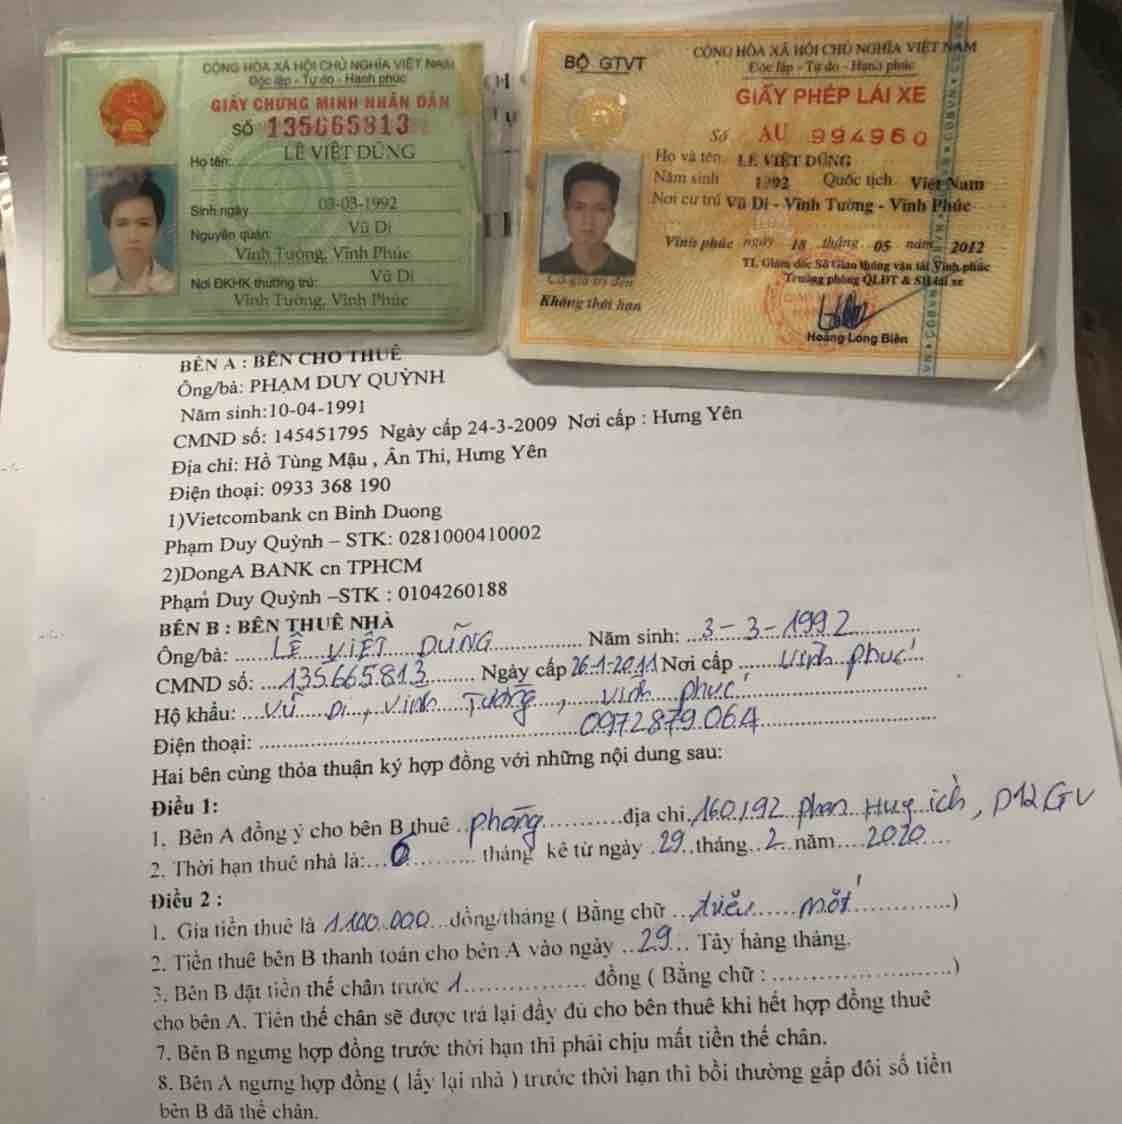 CỘNG HÒA XÃ HỘI CHỦ NGHĨA VIỆT NAM
Độc lập - Tự do - Hạnh phúc
GIẤY CHỨNG MINH NHÂN DÂN
SỐ 135665813
Họ tên: LÊ VIỆT DŨNG
Sinh ngày 03-03-1992
Nguyên quán: Vũ Di
Vĩnh Tường, Vĩnh Phúc
Nơi ĐKHK thường trú: Vũ Di
Vĩnh Tường, Vĩnh Phúc
BỘ GTVT
CỘNG HÒA XÃ HỘI CHỦ NGHĨA VIỆT NAM
Độc lập - Tự do - Hạnh phúc
GIẤY PHÉP LÁI XE
Số AU 994960
Họ và tên LÊ VIỆT DŨNG
Năm sinh 1992 Quốc tịch Việt Nam
Nơi cư trú Vũ Di - Vĩnh Tường - Vĩnh Phúc
Vĩnh phúc ngày 18 tháng 05 năm 2012
TL Giám đốc Sở Giao thông vận tải Vĩnh phúc
Trưởng phòng QLĐT & SH lái xe
Có giá trị đến
Không thời hạn
Hoàng Long Biên
BÊN A : BÊN CHO THUÊ
Ông/bà: PHẠM DUY QUỲNH
Năm sinh:10-04-1991
CMND số: 145451795 Ngày cấp 24-3-2009 Nơi cấp : Hưng Yên
Địa chỉ: Hồ Tùng Mậu , Ân Thi, Hưng Yên
Điện thoại: 0933 368 190
1)Vietcombank cn Binh Duong
Phạm Duy Quỳnh – STK: 0281000410002
2)DongA BANK cn TPHCM
Phạm Duy Quỳnh –STK : 0104260188
BÊN B : BÊN THUÊ NHÀ
Ông/bà: LÊ VIỆT DŨNG Năm sinh: 3-3-1992
CMND số: 135665813 Ngày cấp 26-1-2011 Nơi cấp Vĩnh phúc
Hộ khẩu: Vũ Di, Vĩnh Tường, Vĩnh phúc
Điện thoại: 0972879064
Hai bên cùng thỏa thuận ký hợp đồng với những nội dung sau:
Điều 1:
1. Bên A đồng ý cho bên B thuê phòng địa chỉ 160/92 phan Huy ích, P12 GV
2. Thời hạn thuê nhà là: 6 tháng kể từ ngày 29 tháng 2 năm 2020
Điều 2 :
1. Gía tiền thuê là 1.100.000 đồng/tháng ( Bằng chữ triệu mốt )
2. Tiền thuê bên B thanh toán cho bên A vào ngày 29 Tây hàng tháng.
3. Bên B đặt tiền thế chân trước 1 đồng ( Bằng chữ : )
cho bên A. Tiền thế chân sẽ được trả lại đầy đủ cho bên thuê khi hết hợp đồng thuê
7. Bên B ngưng hợp đồng trước thời hạn thì phải chịu mất tiền thế chân.
8. Bên A ngưng hợp đồng ( lấy lại nhà ) trước thời hạn thì bồi thường gấp đôi số tiền
bên B đã thế chân.